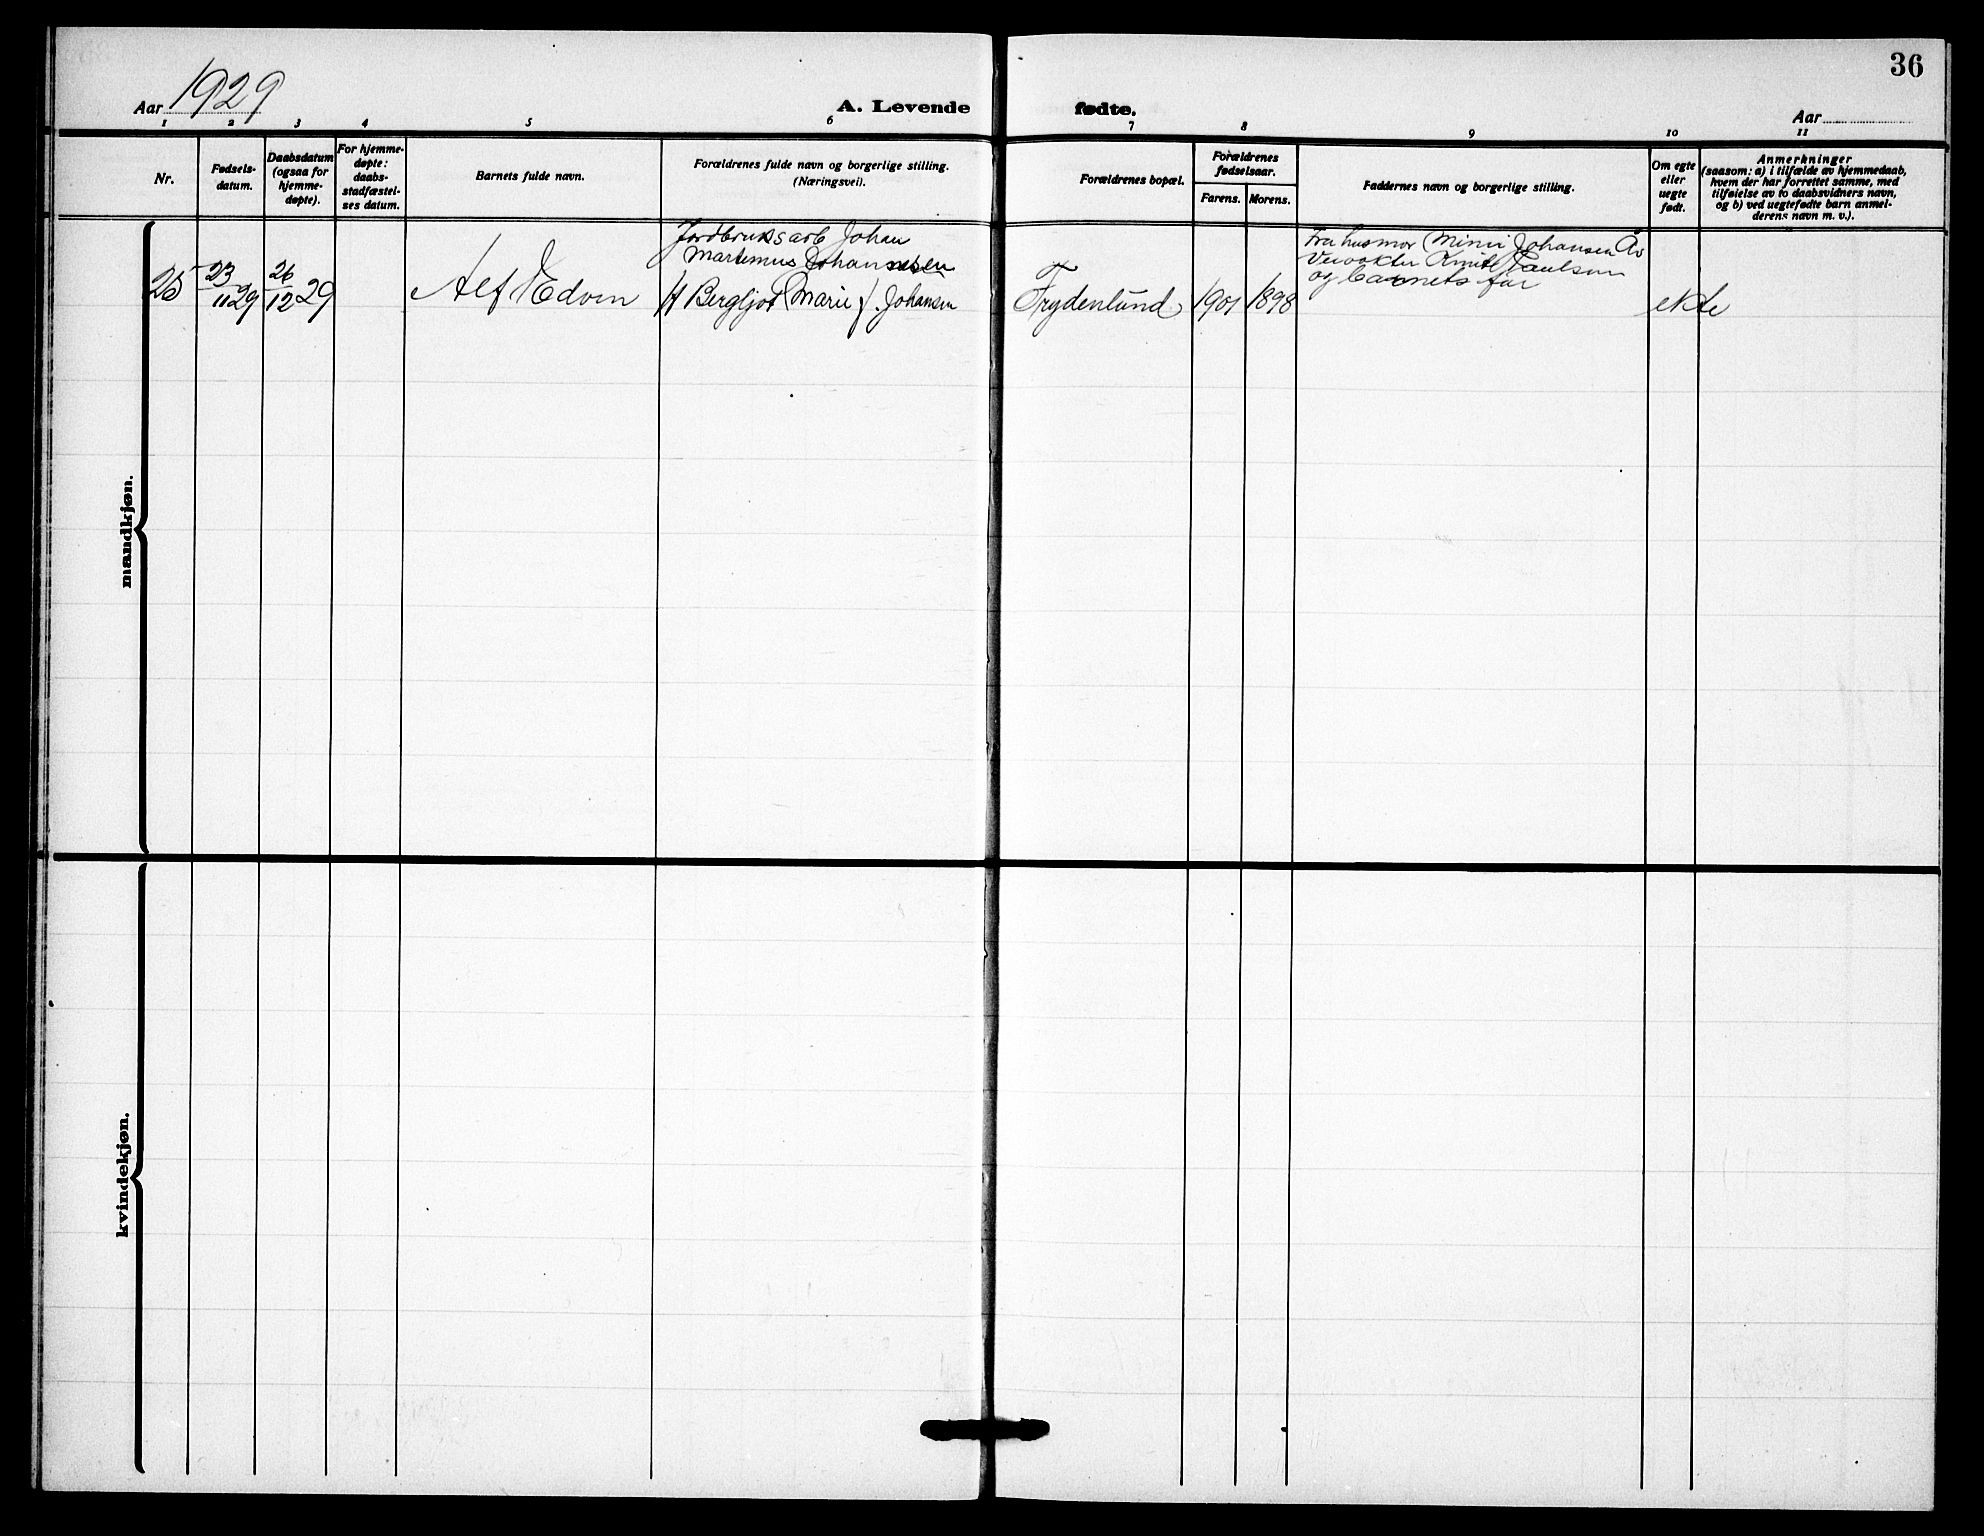 36
Aar 1929
A. Levende fødte.
Aar
1 2 3 4 5 6 7 8 9 10 11
Nr.
Fødsels-
datum.
Daabsdatum
(ogsaa for
hjemme-
døpte).
For hjemme-
døpte:
daabs-
stadfæstel-
ses datum.
Barnets fulde navn.
Forældrenes fulde navn og borgerlige stilling.
(Næringsvei).
Forældrenes bopæl.
Forældrenes
fødselsaar.
Farens. Morens.
Faddernes navn og borgerlige stilling.
Om egte
eller
uegte
født.
Anmerkninger
(saasom: a) i tilfælde av hjemmedaab,
hvem der har forrettet samme, med
tilføielse av to daabsvidners navn,
og b) ved uegtefødte barn anmel-
derens navn m. v.).
mandkjøn.
25
23/11 29
26/12 29
Alf Edvin
Jordbruksarb Johan
Martinius Johannesen
H Bergljot (Marie) f. Johansen
Frydenlund
1901
1898
Fru husmor Mimi Johansen Ås
Veivokter Paulsen
og barnets far
ekte
kvindekjøn.